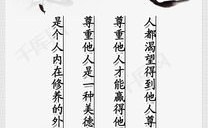 人都渴望得到他人尊
尊重他人才能赢得他
尊重他人是一种美德
是个人内在修养的外